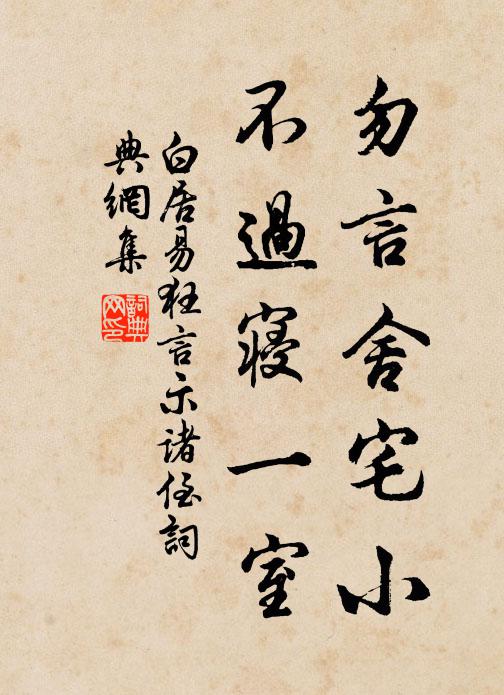 勿言舍宅小
不過寢一室
白居易狂言示諸侄詞
典網集
詞典網印